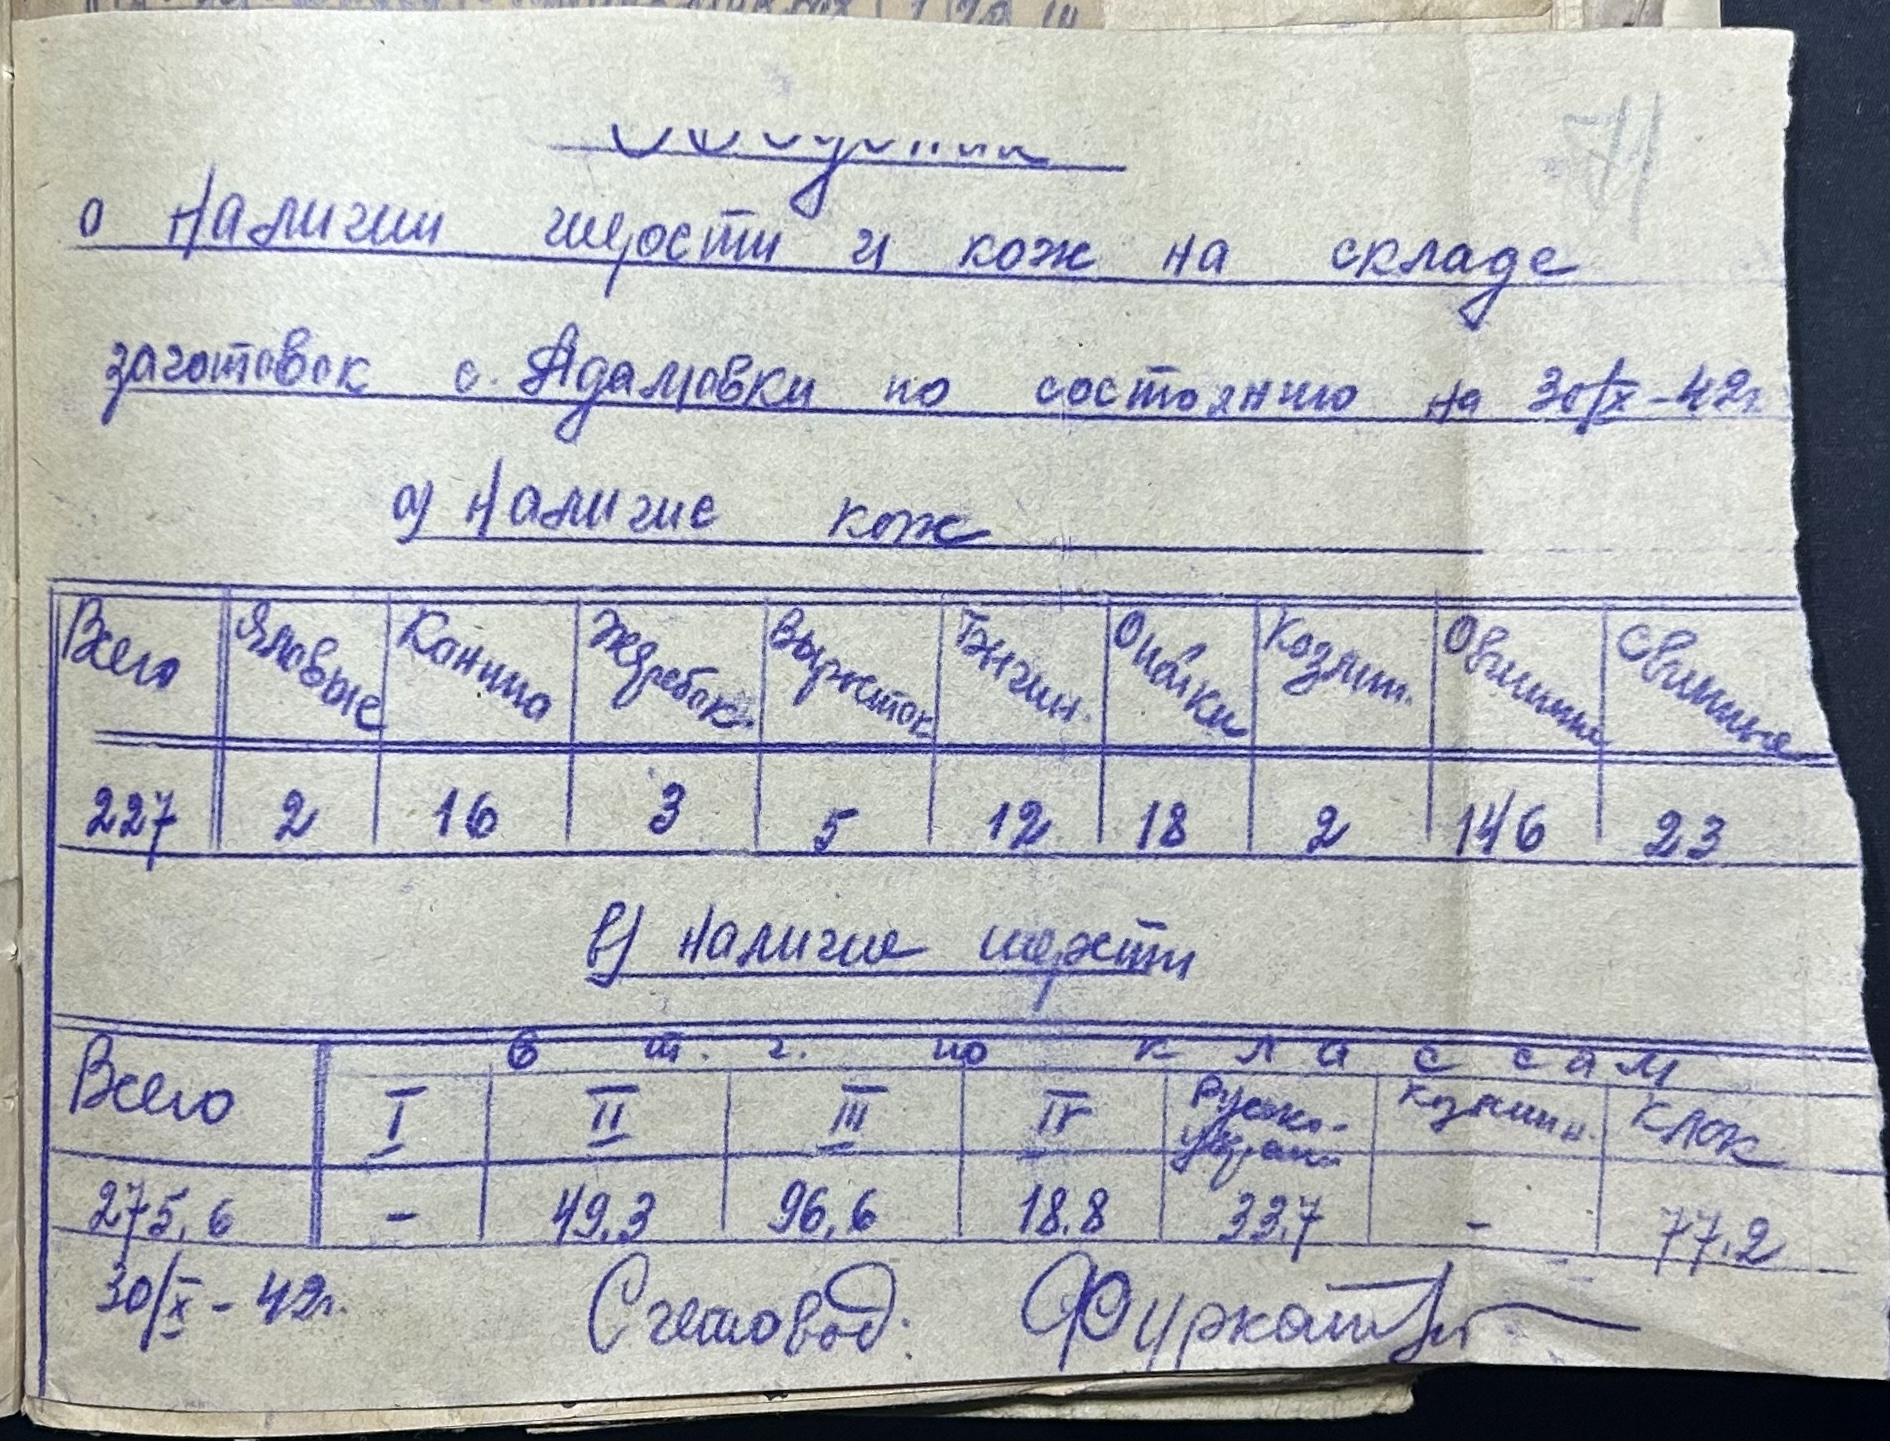 о наличии шерсти и кож на складе
заготовок с. Адамовки по состоянию на 30/X-42г.
а) Наличие кож
Всего Яловые Конина Жеребок. Выросток Бычин. Опойки Козлин. Овчины Свиные
227 2 16 3 5 12 18 2 146 23
в) Наличие шерсти
в т. г. по классам
Всего I II III IV Русско- Козлин. Клок
275,6 - 49,3 96,6 18.8 33,7 - 77,2
30/X-42г. Счетовод: